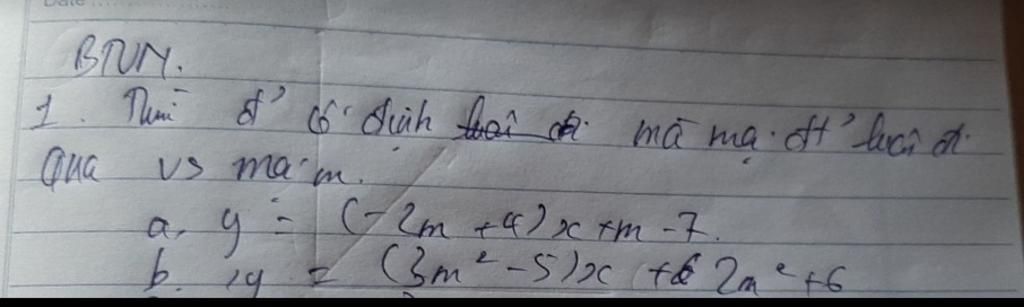 BTVN.
1. Tìm đ' cố định mà mọi đt' luôn đi
Qua vs mọi m.
a, y = (-2m + 4)x + m - 7.
b. y = (3m² - 5)x + 2m² + 6